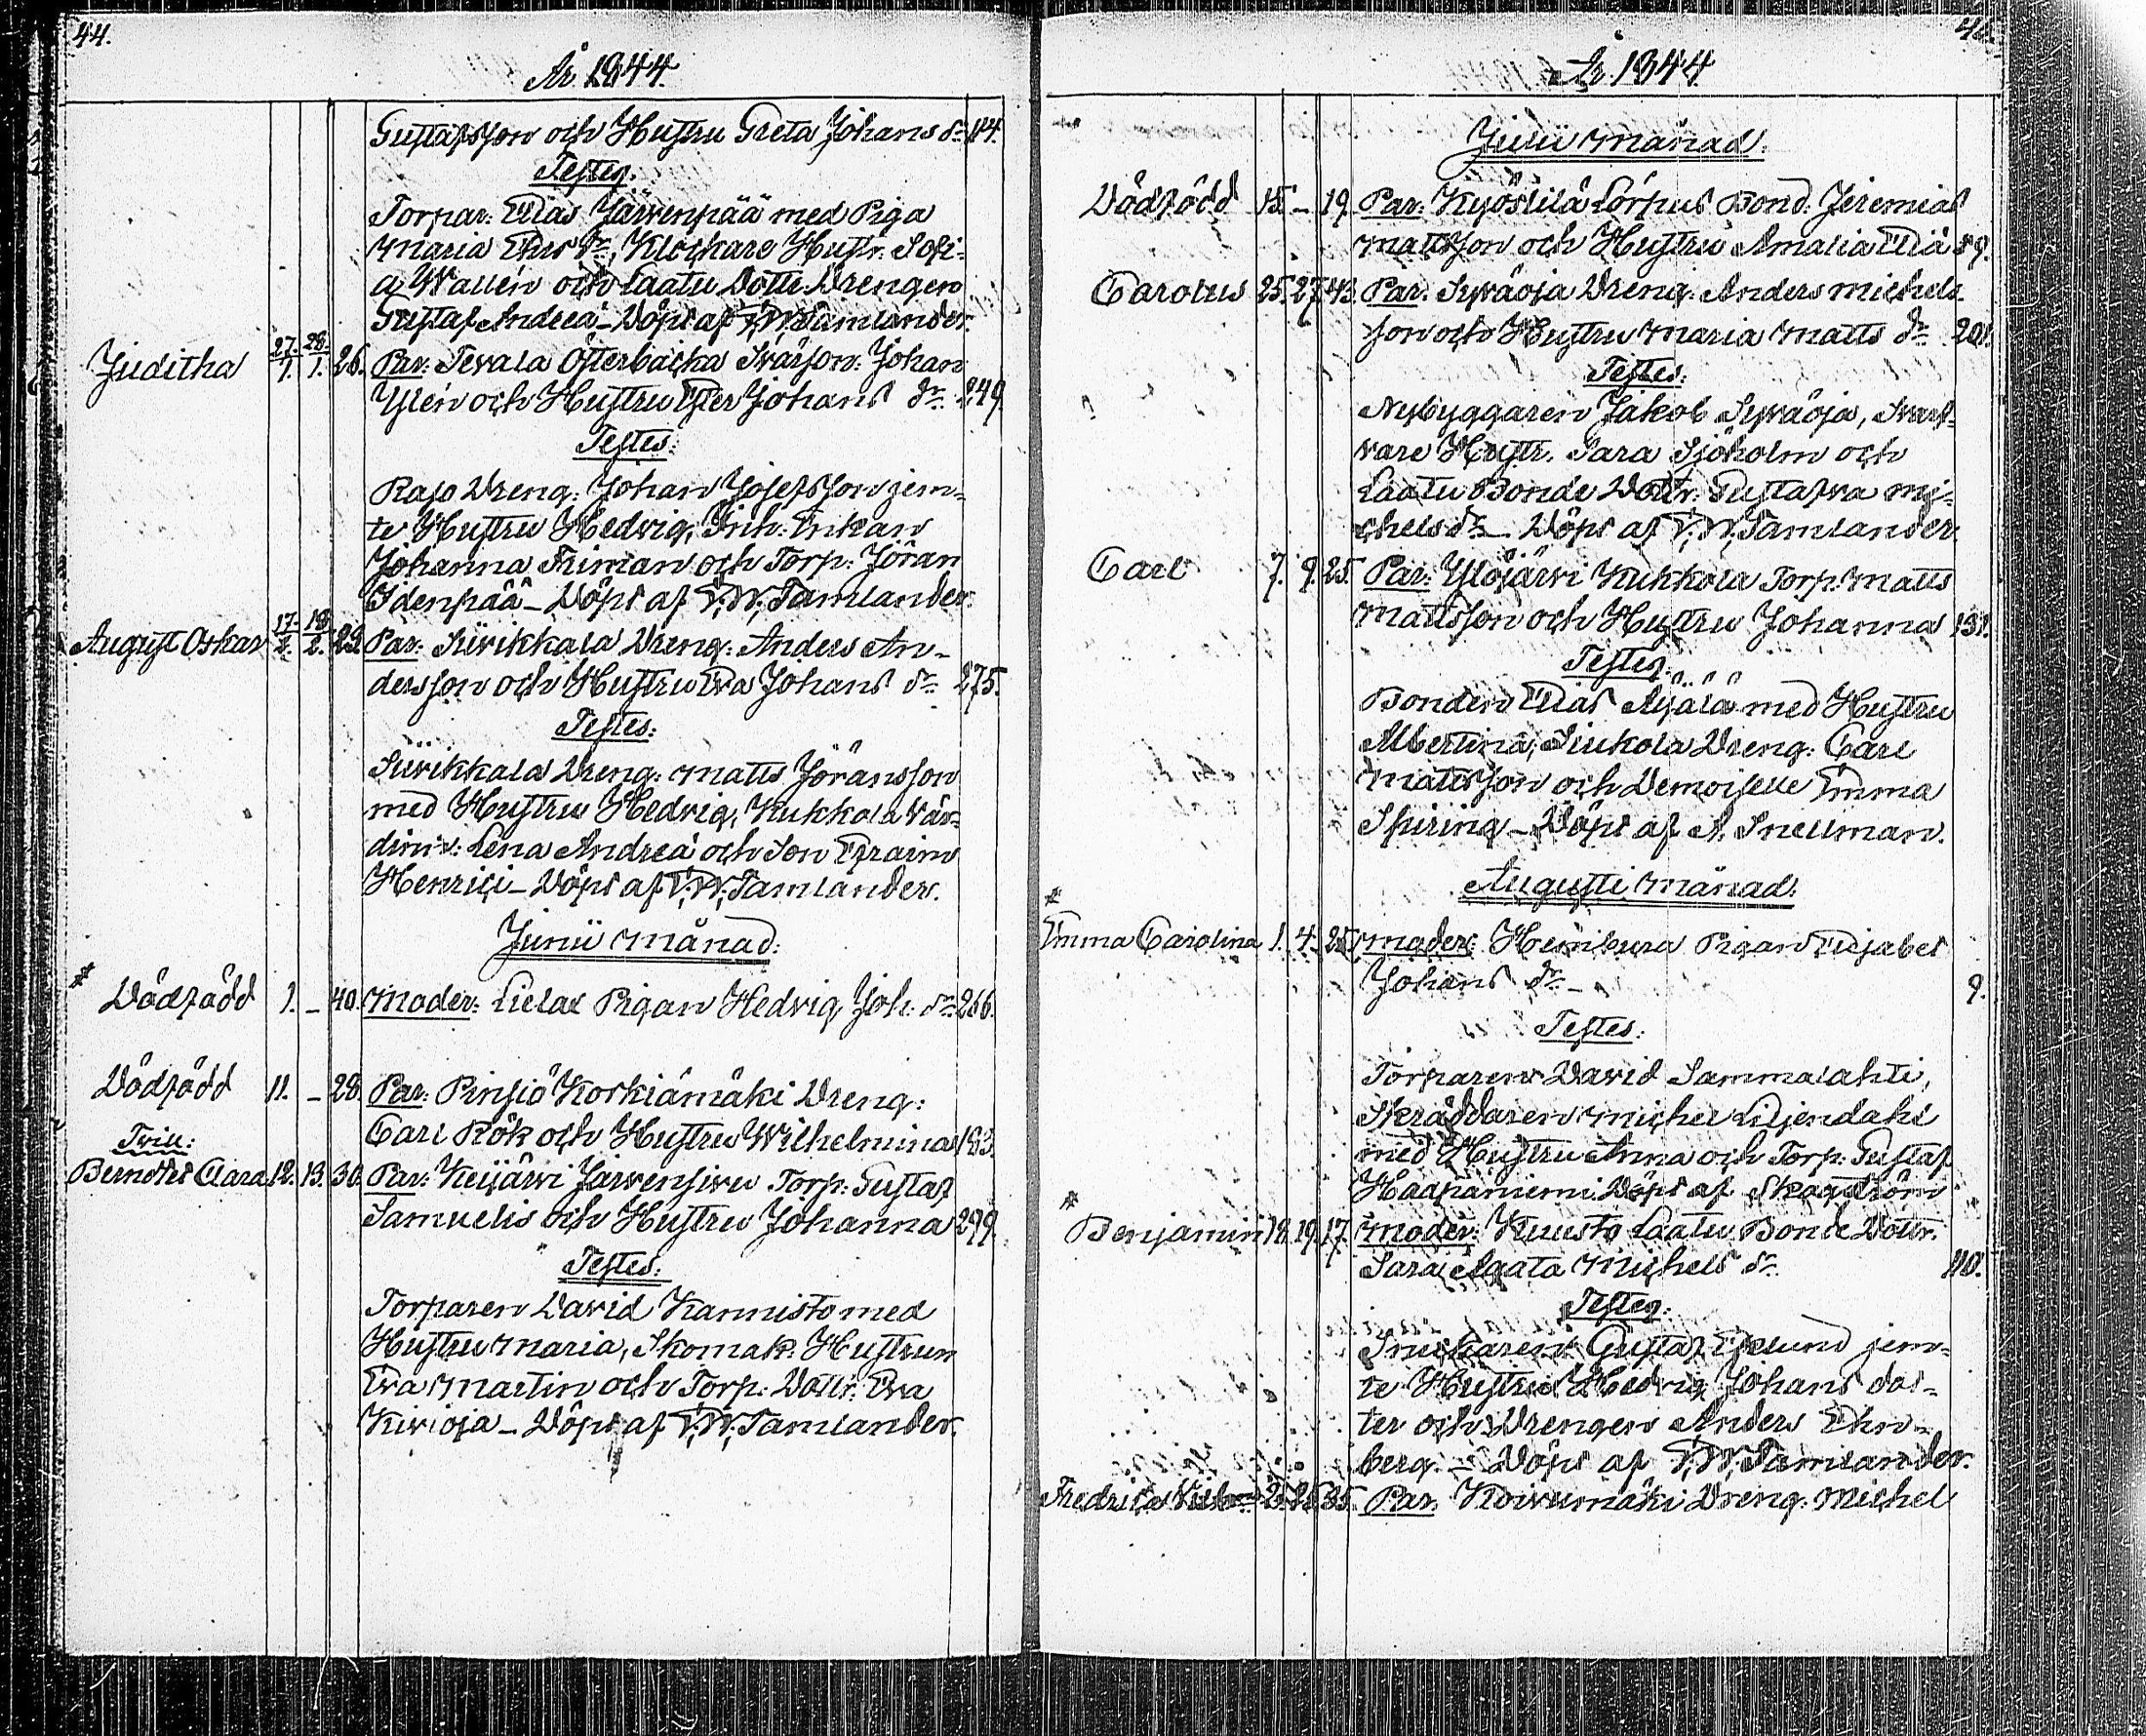 44.
År 1844.
Gustafsson och Hustru Greta Johans dr 114.
Testes:
Torpar: Elias Järvenpää med Piga
Maria Ehrs dr, Klockare Hustr. Sofi-
a Wallén och Laatu Dottr. Drengen
Gustaf Andreä – Döpt af F.W. Tamlander.
Juditha 27/1. 28/1. 26. Par: Tevala Österbacka Svärson: Johan
Ylén och Hustru Ester Johans dr. 249.
Testes:
Rajo Dreng: Johan Josefsson jem-
te Hustru Hedvig, Inh: Enkan
Johanna Friman och Torp: Jöran
Idenpää – Döpt af F.W. Tamlander.
August Oskar 17/2. 18/2. 29. Par: Siirikkala Dreng: Anders An-
dersson och Hustru Eva Johans dr. 275.
Testes:
Siirikkala Dreng: Matts Jöransson
med Hustru Hedvig, Kukkola Vär-
dinn: Lena Andreä och Son Efraim
Henrici – Döpt af F.W. Tamlander.
Junii Månad:
# Dödfödd 1. – 40. Moder: Lielax Pigan Hedvig Joh. dr 266.
Dödfödd 11. – 28. Par: Pinsiö Korkiamäki Dreng:
Carl Rök och Hustru Wilhelmina 183.
Trill:
Berndt Clara 12. 13. 30. Par: Keijärvi Järvensivu Torp: Gustaf
Samuelis och Hustru Johanna 299.
Testes:
Torparen David Kannisto med
Hustru Maria, Skomak: Hustrun
Eva Martin och Torp: Dottr. Eva
Kirioja – Döpt af F.W. Tamlander.
År 1844
Julii Månad:
Dödfödd 15. – 19. Par: Kyöstilä Lörpus Bond. Jeremias
Mattsson och Hustru Amalia Eliä 89.
Carolus 25. 27. 43. Par: Syväoja Dreng: Anders Michels-
son och Hustru Maria Matts dr. 201.
Testes:
Nybyggaren Jakob Syväoja, Svarf-
vare Hustr. Sara Sjöholm och
Laatu Bonde Dottr. Gustafva Mi-
chels dr – Döpt af F.W. Tamlander.
Carl 7. 9. 25. Par: Ylöjärvi Kukkola Torp. Matts
Mattsson och Hustru Johanna 131.
Testes:
Bonden Elias Äijälä med Hustru
Albertina, Siukola Dreng: Carl
Mattsson och Demoiselle Emma
Spiring – Döpt af A. Snellman.
Augusti Månad:
#
Emma Carolina 1. 4. 25. Moder: Heinikura Pigan Elisabet
Johans dr – 9.
Testes:
Torparen David Sammalahti,
Skräddaren Michel Liljendahl
med Hustru Anna och Torp: Gustaf
Haapaniemi Döpt af Skogström
#
Benjamin 18. 19. 17. Moder: Kuusto Laatu Bonde Dottr.
Sara Agata Michels dr. 110.
Testes:
Snickaren Gustaf Eklund jem-
te Hustru Hedvig Johans dot-
ter och Drengen Anders Ehn-
berg. – Döpt af F.W. Tamlander.
Fredrica 25. 35. Par. Koivumäki Dreng: Michel